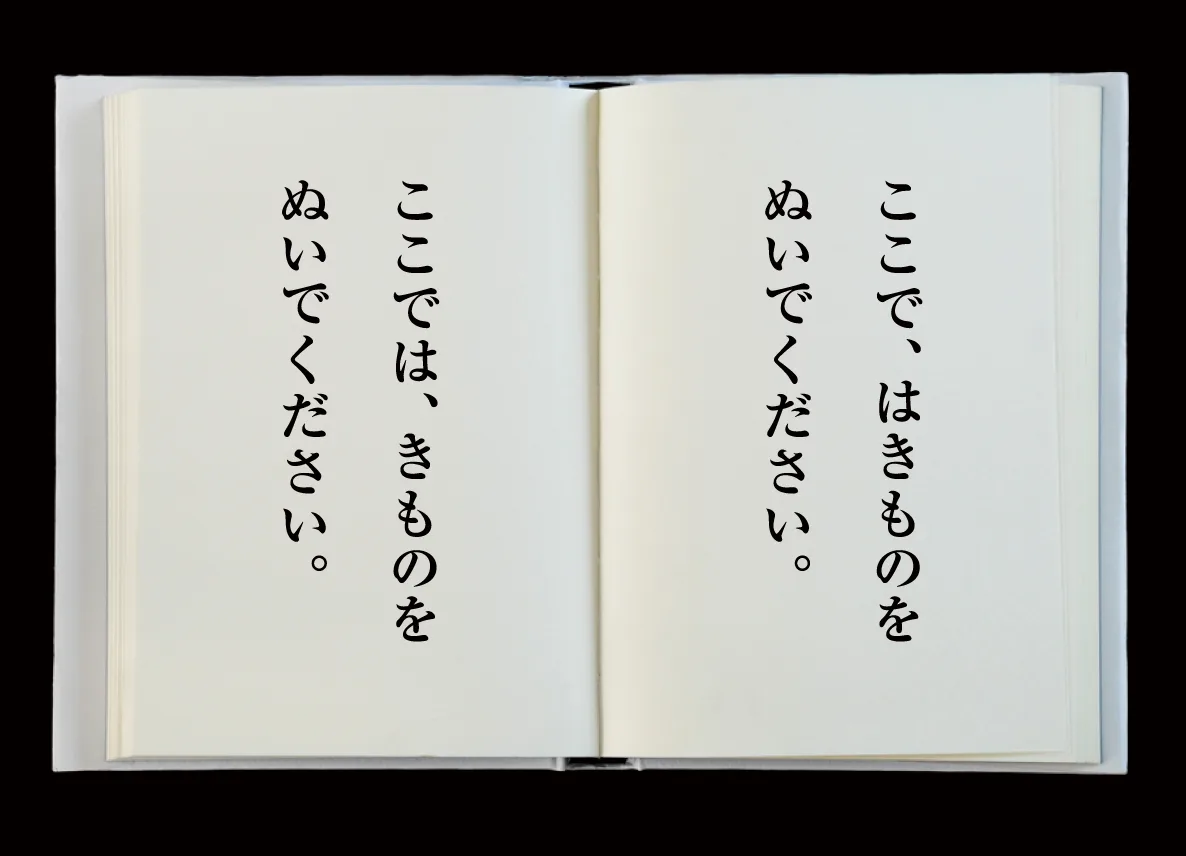 ここで、はきものを
ぬいでください。
ここでは、きものを
ぬいでください。